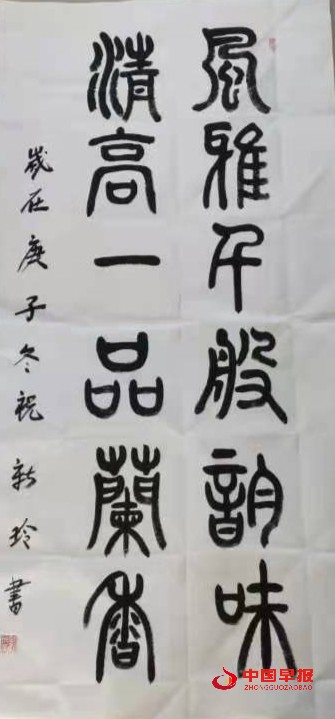 風雅千般韵味
清高一品蘭香
歲在庚子冬祝新玲書
中国早报
ZHONGGUOZAOBAO